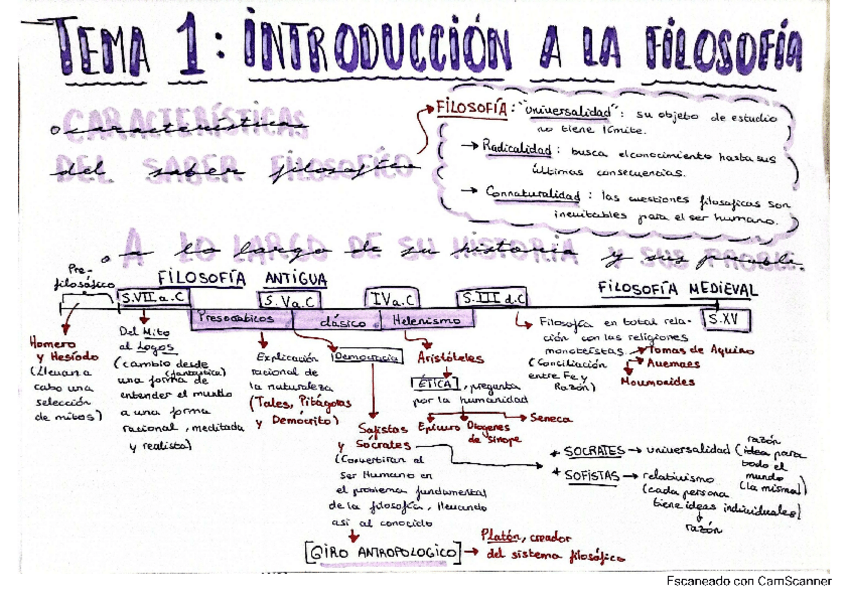 TEMA 1: INTRODUCCIÓN A LA FILOSOFÍA
o CARACTERÍSTICAS
características
DEL SABER FILOSÓFICO
del saber filosófico
FILOSOFÍA: "universalidad": su objeto de estudio
no tiene límite.
→ Radicalidad: busca el conocimiento hasta sus
últimas consecuencias.
→ Connaturalidad: las cuestiones filosóficas son
inevitables para el ser humano.
o A LO LARGO DE SU HISTORIA Y SUS PROBL.
Pre-
filosófico
FILOSOFÍA ANTIGUA
FILOSOFÍA MEDIEVAL
S.VII a.C
S. V a.C
IV a.C
S. III d.C
S.XV
Presocráticos
clásico
Helenismo
Homero
y Hesíodo
(llevan a
cabo una
selección
de mitos)
Del Mito
al Logos
(cambio desde
(fantástica)
una forma de
entender el mundo
a una forma
racional, meditada
y realista)
Explicación
racional de
la naturaleza
(Tales, Pitágoras
y Demócrito)
Democracia
Sofistas
y Sócrates
(Convertirán al
ser Humano en
el problema fundamental
de la filosofía, llevando
así al conocido
[GIRO ANTROPOLOGICO]
→ Platón, creador
del sistema filosófico
Aristóteles
ÉTICA, pregunta
por la humanidad
Epicuro
Diogenes
de Sinope
Seneca
Filosofía en total rela-
ción con las religiones
monoteístas
(Conciliación
entre Fe y
Razón)
Tomas de Aquino
Averroes
Maimonides
+ SOCRATES → universalidad (idea para
razón
todo el
mundo
(la misma)
+ SOFISTAS → relativismo
(cada persona
tiene ideas individuales)
y
razón
Escaneado con CamScanner